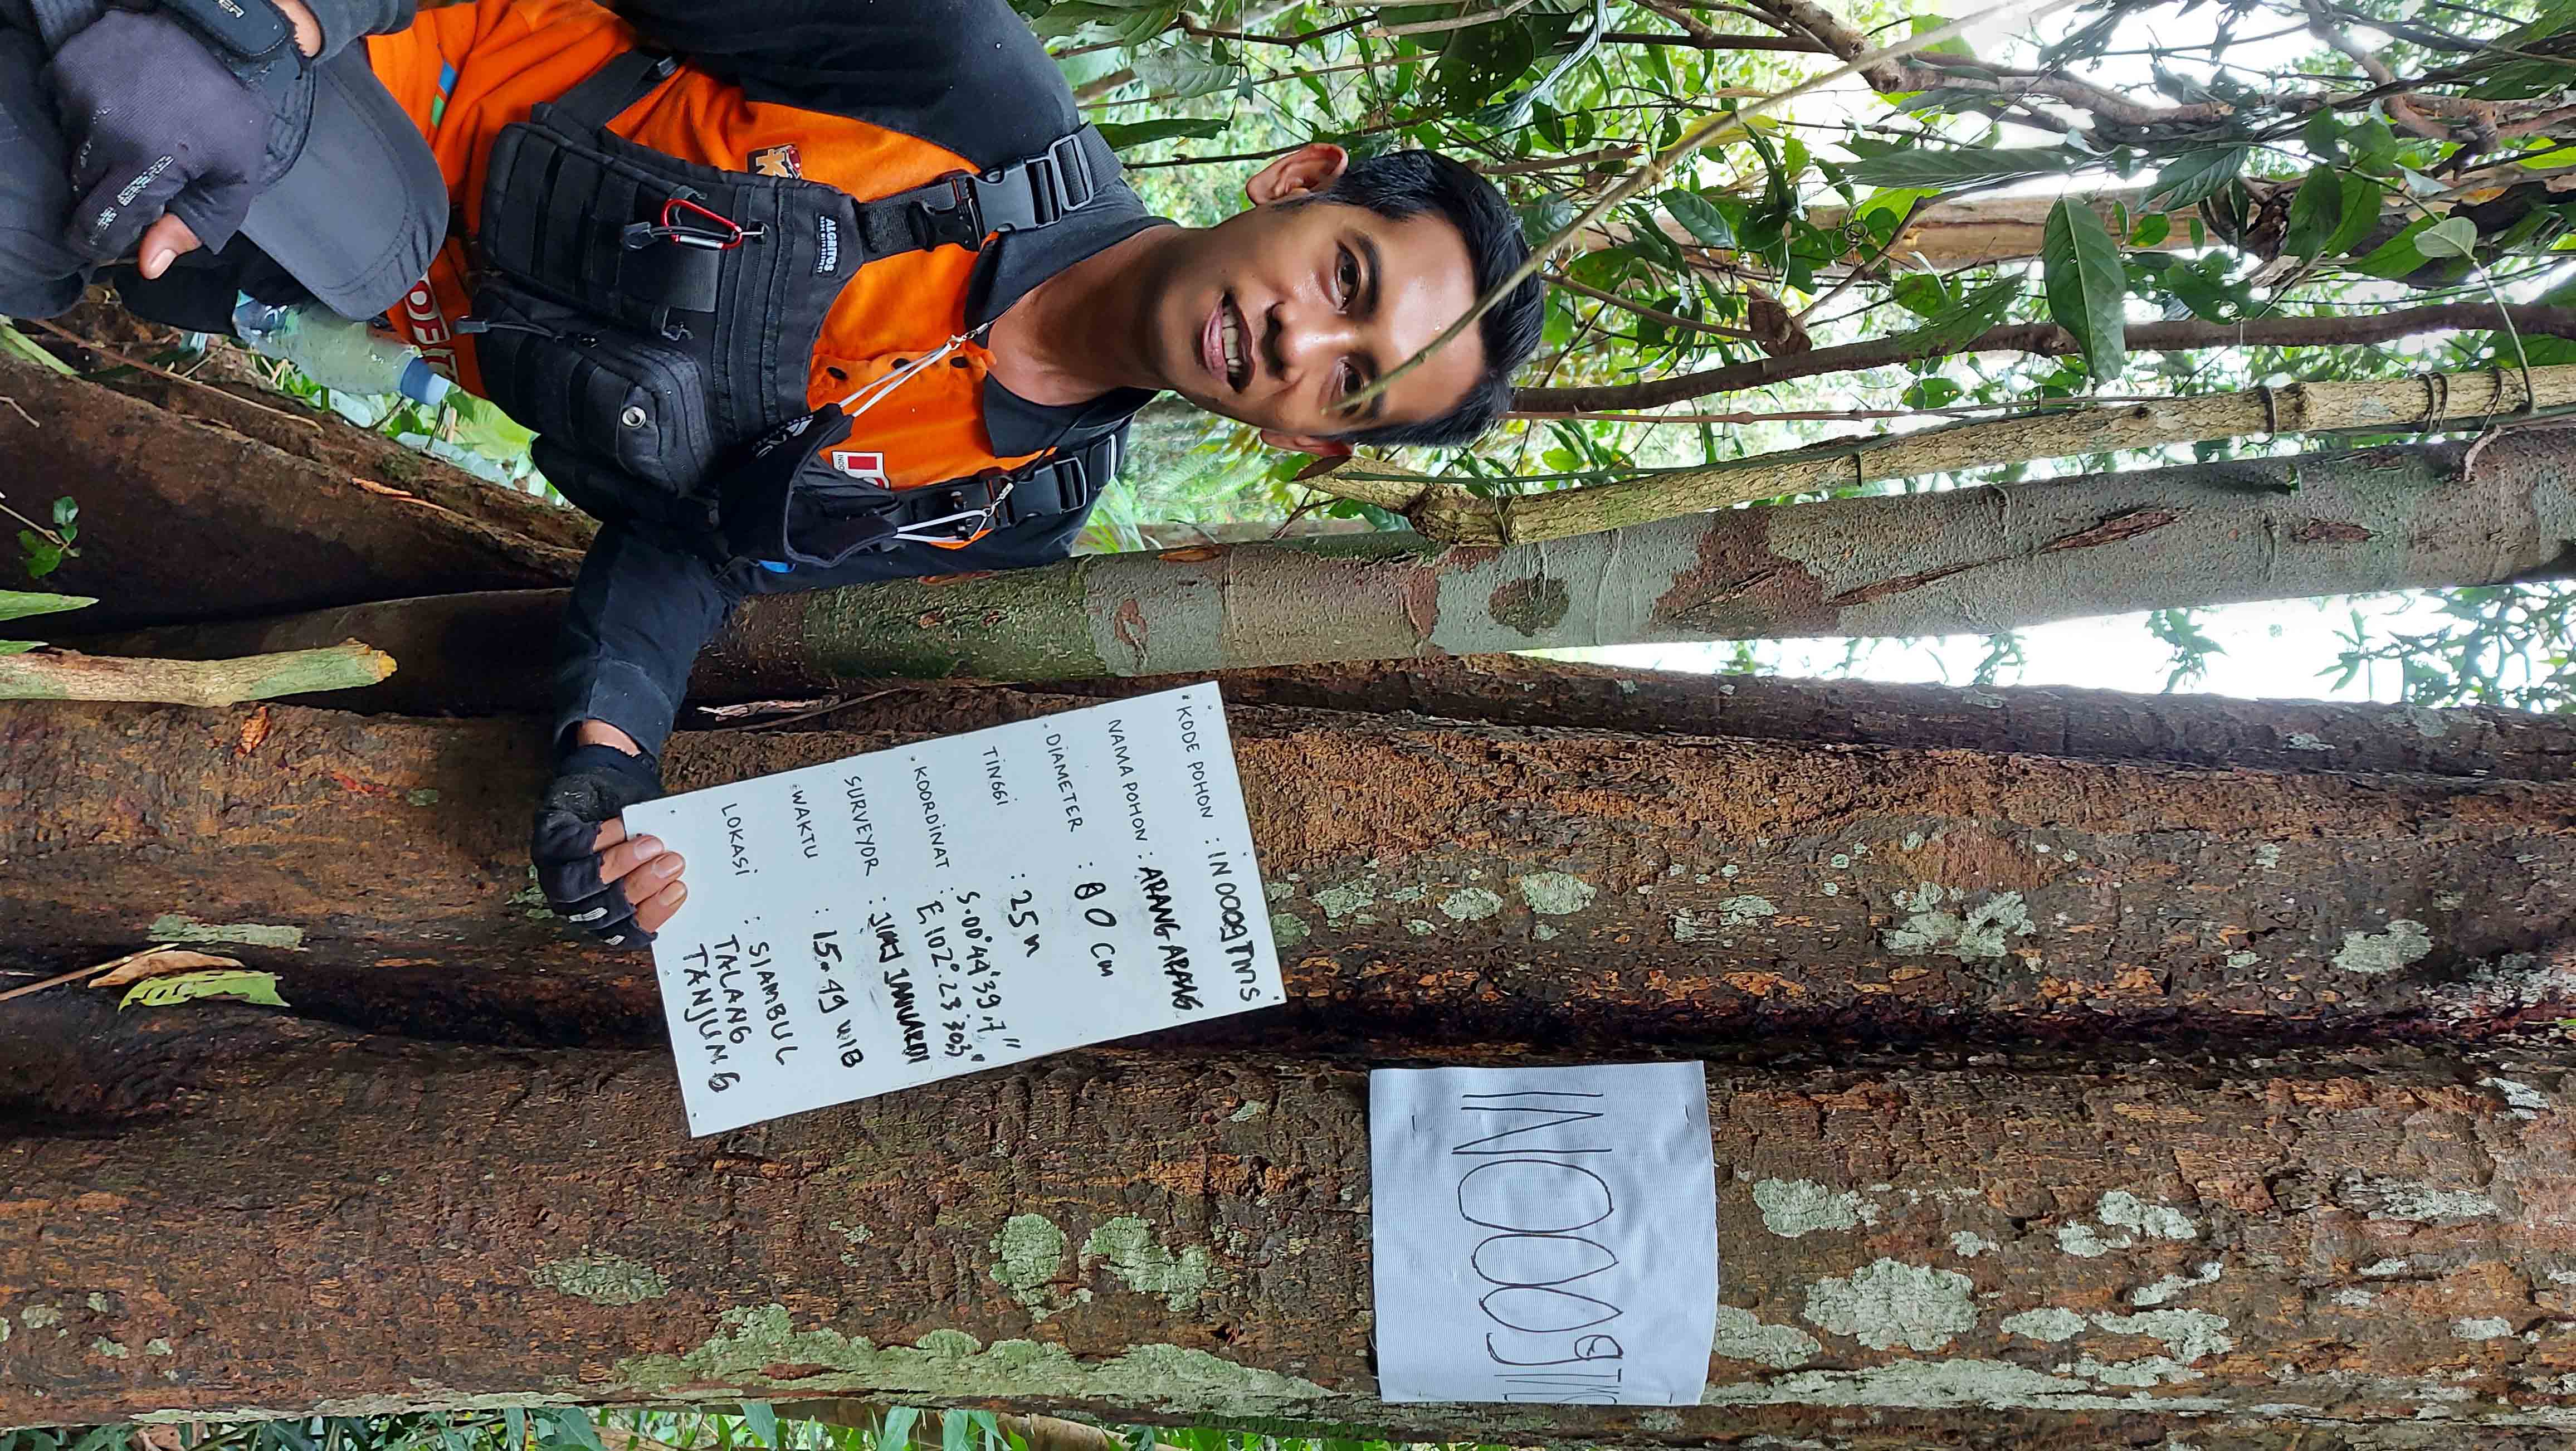 KODE POHON : IN0009TMS
NAMA POHON : ARANG ARANG
DIAMETER : 80 Cm
TINGGI : 25 m
KOORDINAT : S.00°44'39.7"
E 102°.23'
SURVEYOR : JANUARDI
WAKTU : 15.49 WIB
LOKASI : SIAMBUL
TALANG
TANJUNG
IN0009TMS
ALGRITOS